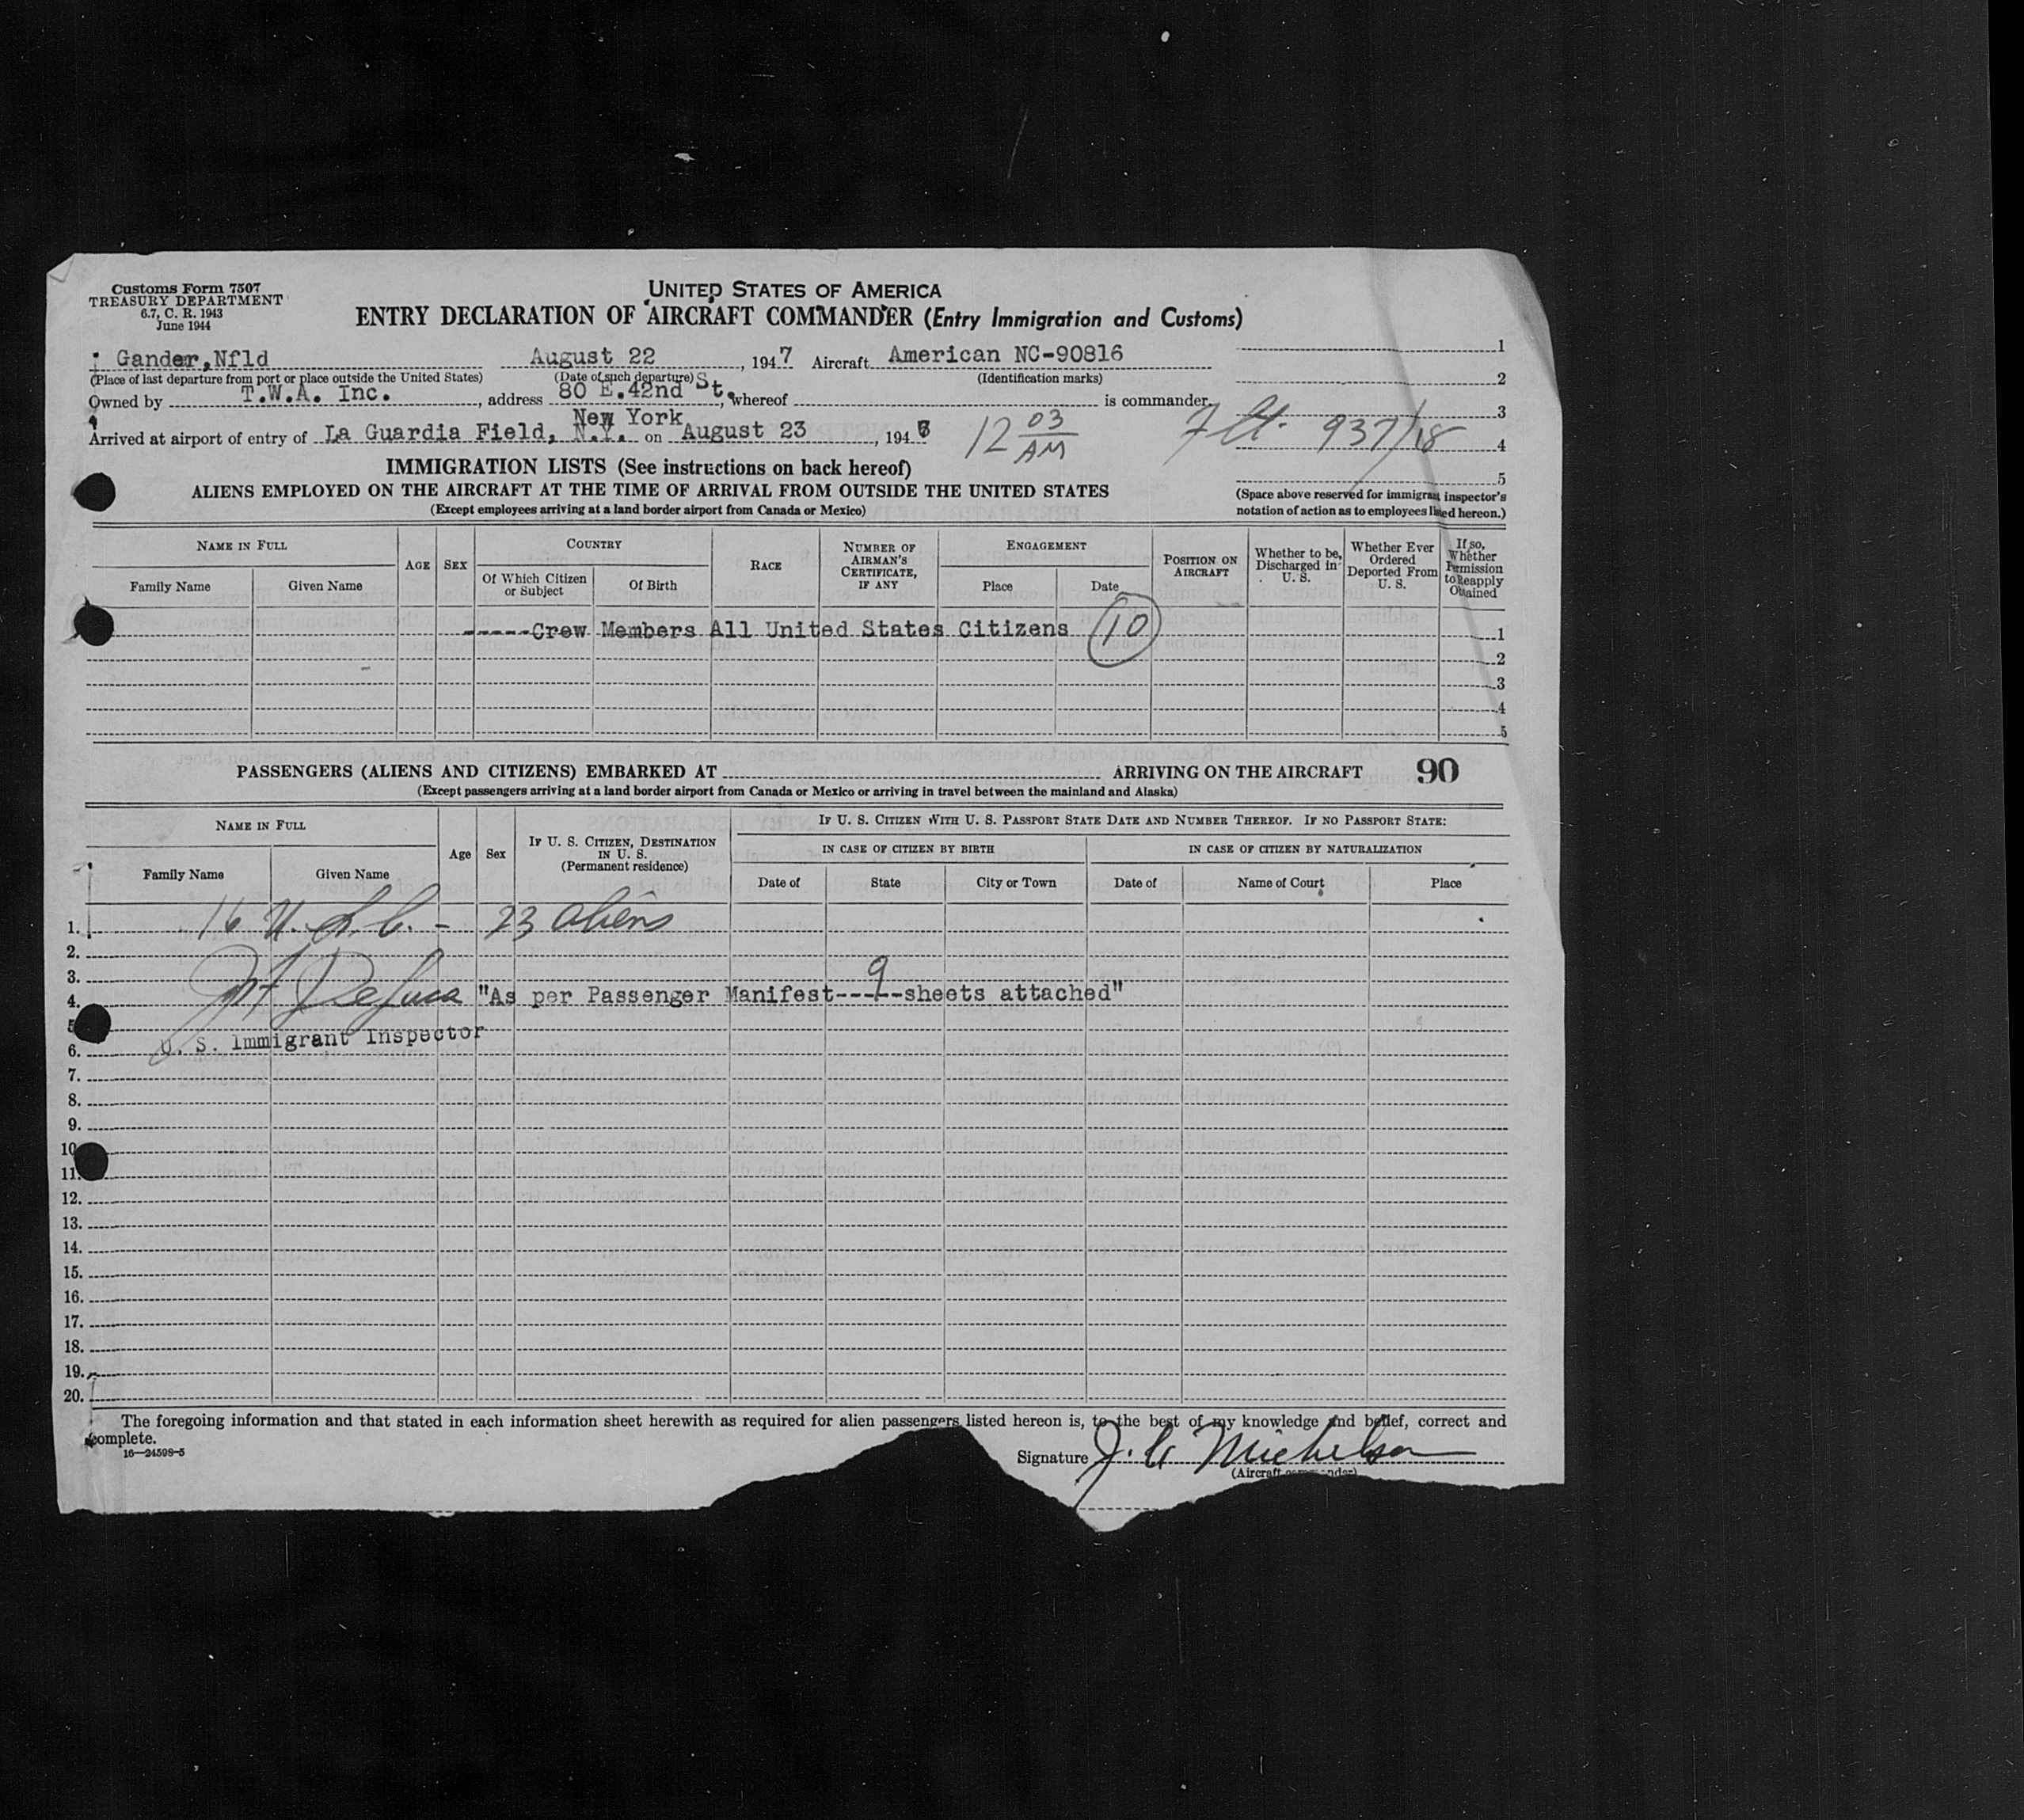 Customs Form 7507
TREASURY DEPARTMENT
6.7, C. R. 1943
June 1944
UNITED STATES OF AMERICA
ENTRY DECLARATION OF AIRCRAFT COMMANDER (Entry Immigration and Customs)
Gander,Nfld August 22, 1947 Aircraft American NC-90816
(Place of last departure from port or place outside the United States) (Date of such departure) (Identification marks)
Owned by T.W.A. Inc., address 80 E.42nd St. whereof is commander.
New York
Arrived at airport of entry of La Guardia Field, N.Y. on August 23, 194 12 03 AM Flt. 937/18
1
2
3
4
5
IMMIGRATION LISTS (See instructions on back hereof)
ALIENS EMPLOYED ON THE AIRCRAFT AT THE TIME OF ARRIVAL FROM OUTSIDE THE UNITED STATES
(Except employees arriving at a land border airport from Canada or Mexico)
(Space above reserved for immigrant inspector's
notation of action as to employees listed hereon.)
NAME IN FULL
Family Name Given Name
AGE SEX
COUNTRY
Of Which Citizen or Subject Of Birth
RACE
NUMBER OF AIRMAN'S CERTIFICATE, IF ANY
ENGAGEMENT
Place Date
POSITION ON AIRCRAFT
Whether to be Discharged in U. S.
Whether Ever Ordered Deported From U. S.
If so, Whether Permission to Reapply Obtained
-----Crew Members All United States Citizens 10 1
2
3
4
5
PASSENGERS (ALIENS AND CITIZENS) EMBARKED AT ARRIVING ON THE AIRCRAFT 90
(Except passengers arriving at a land border airport from Canada or Mexico or arriving in travel between the mainland and Alaska)
NAME IN FULL
Family Name Given Name
Age Sex
IF U. S. CITIZEN, DESTINATION IN U. S. (Permanent residence)
IF U. S. CITIZEN WITH U. S. PASSPORT STATE DATE AND NUMBER THEREOF. IF NO PASSPORT STATE:
IN CASE OF CITIZEN BY BIRTH IN CASE OF CITIZEN BY NATURALIZATION
Date of State City or Town Date of Name of Court Place
1. 16 U.S.C. - 23 aliens
2.
3.
4. DeLuca "As per Passenger Manifest---9--sheets attached"
5
U. S. Immigrant Inspector
6.
7.
8.
9.
10
11.
12.
13.
14.
15.
16.
17.
18.
19.
20.
The foregoing information and that stated in each information sheet herewith as required for alien passengers listed hereon is, to the best of my knowledge and belief, correct and
complete.
16—24598-5
Signature J. C. Michelson
(Aircraft commander)